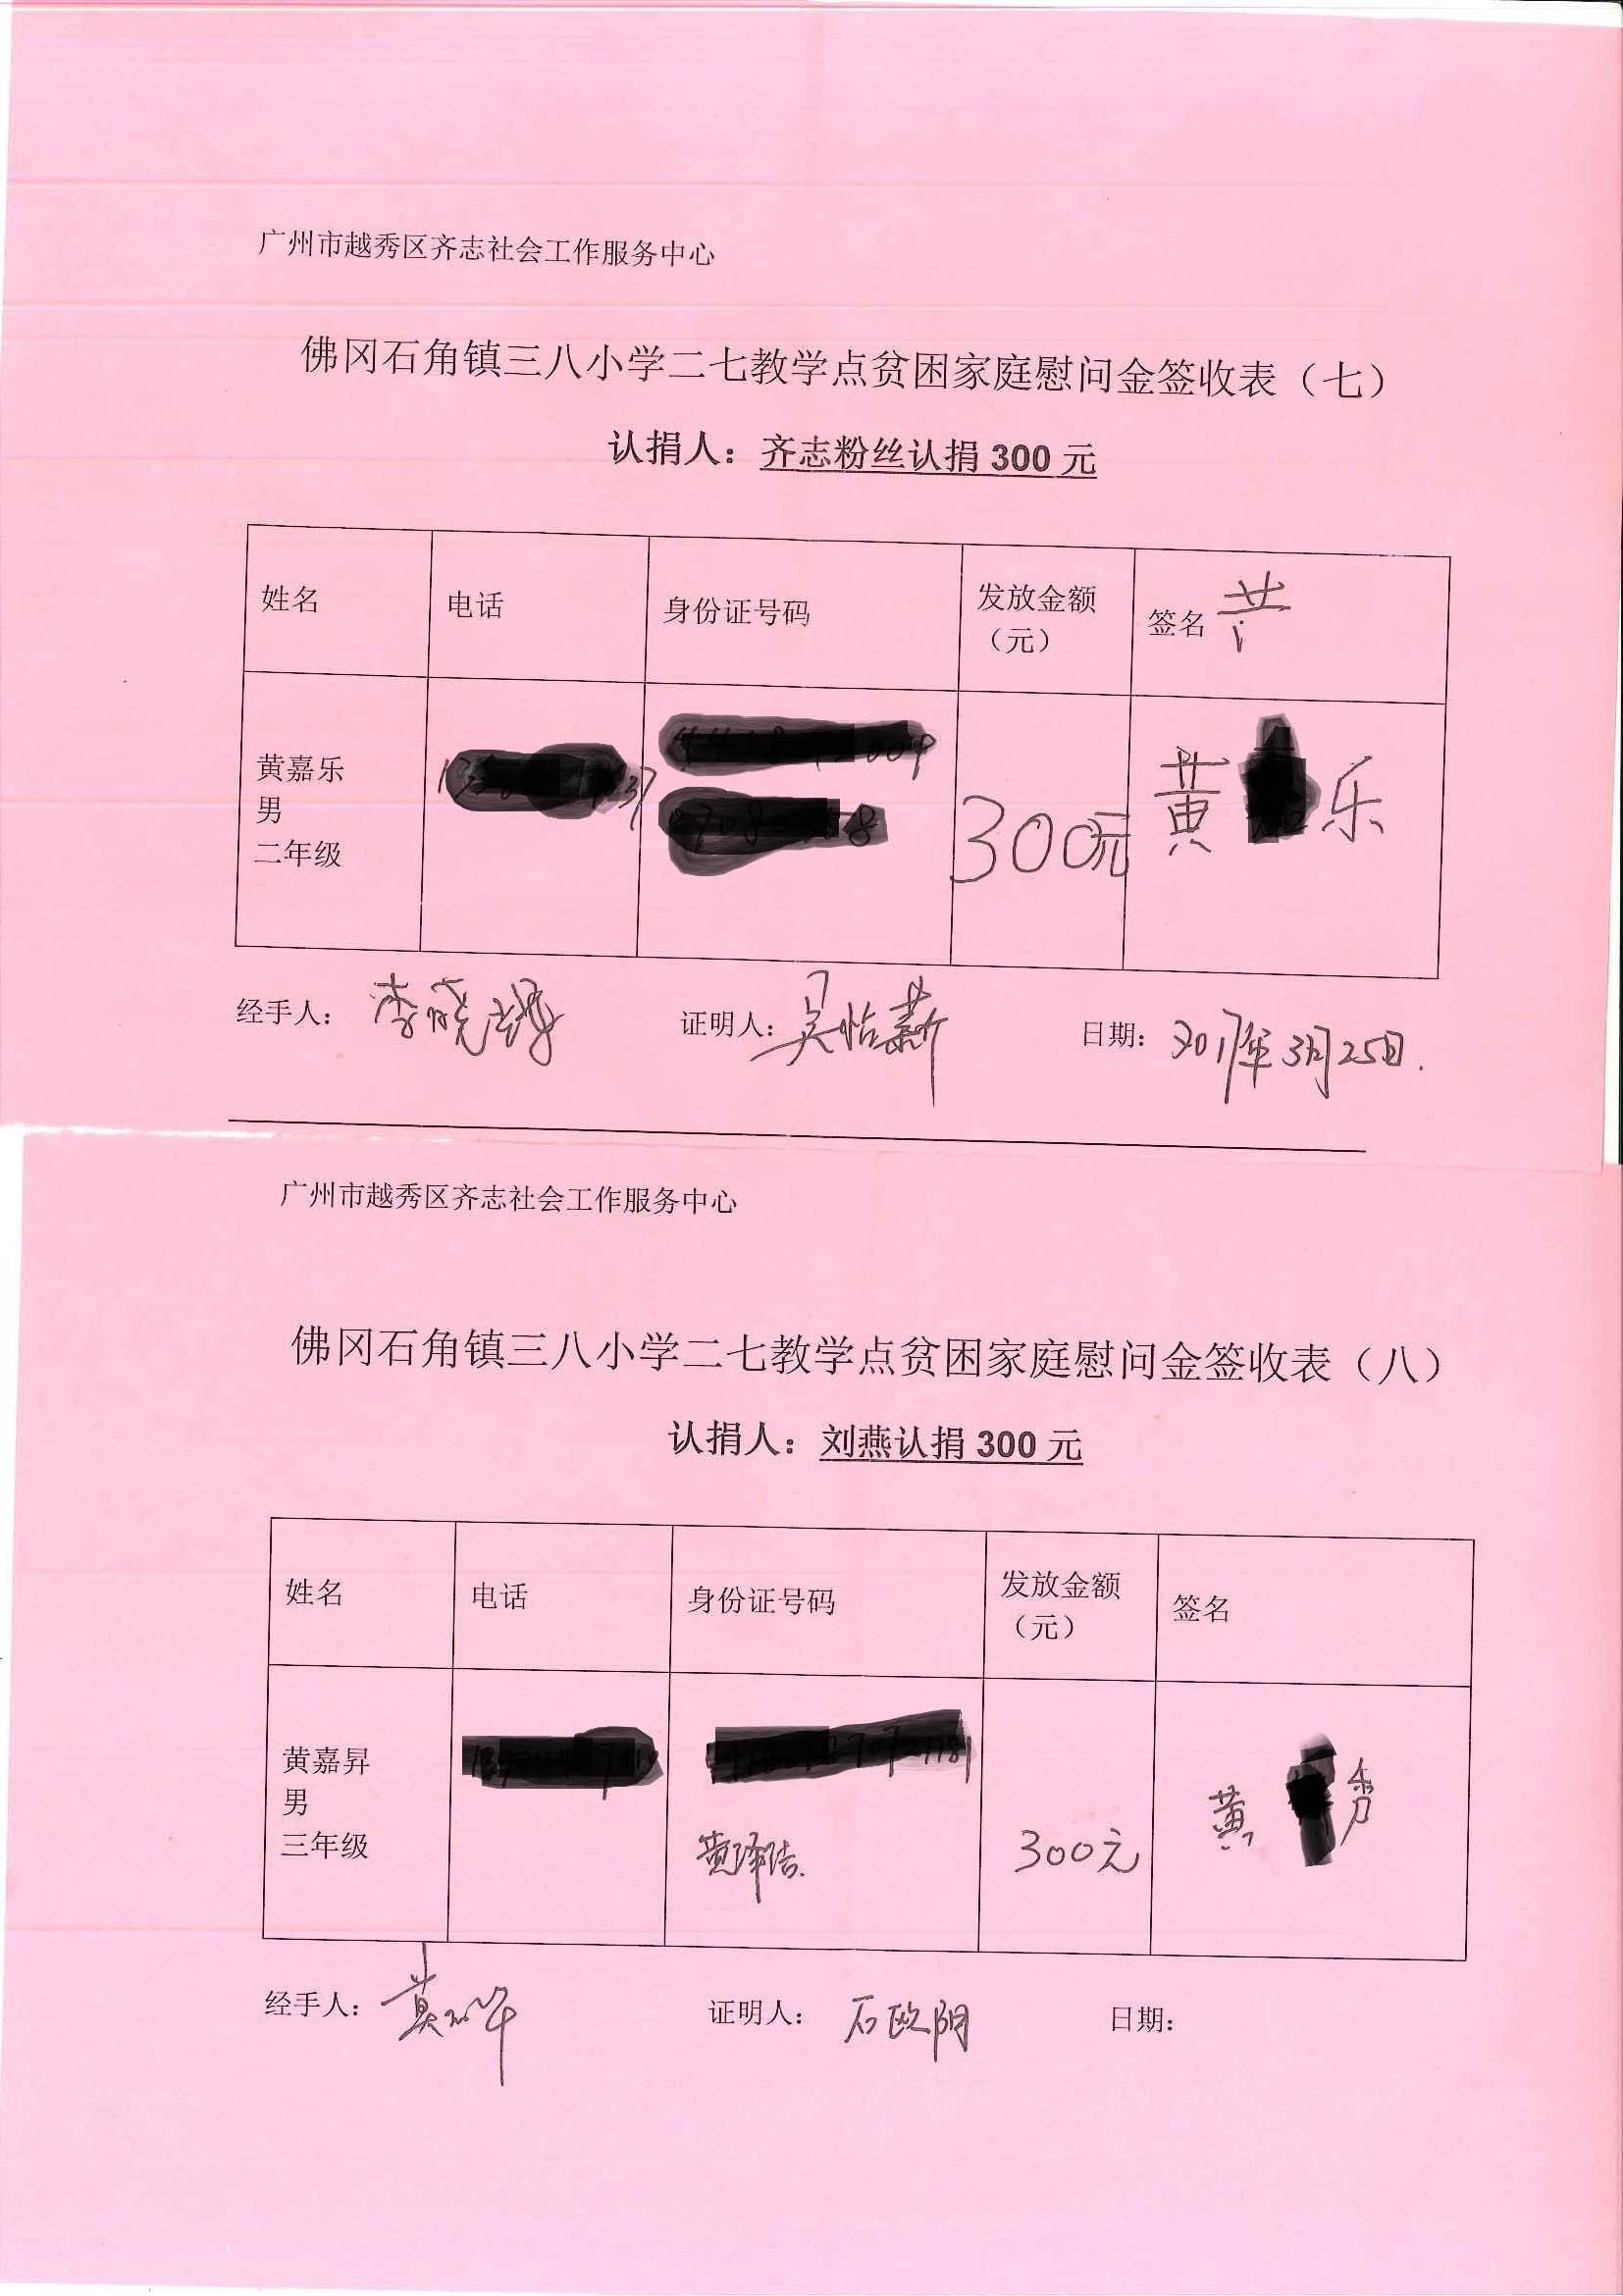 广州市越秀区齐志社会工作服务中心
佛冈石角镇三八小学二七教学点贫困家庭慰问金签收表（七）
认捐人：齐志粉丝认捐 300 元
姓名 电话 身份证号码 发放金额（元） 签名
黄嘉乐
男
二年级
300元
黄 乐
经手人： 证明人：吴怡薪 日期：2017年3月25日.
广州市越秀区齐志社会工作服务中心
佛冈石角镇三八小学二七教学点贫困家庭慰问金签收表（八）
认捐人：刘燕认捐 300 元
姓名 电话 身份证号码 发放金额（元） 签名
黄嘉昇
男
三年级
300元
黄
经手人： 证明人：石欧阴 日期：